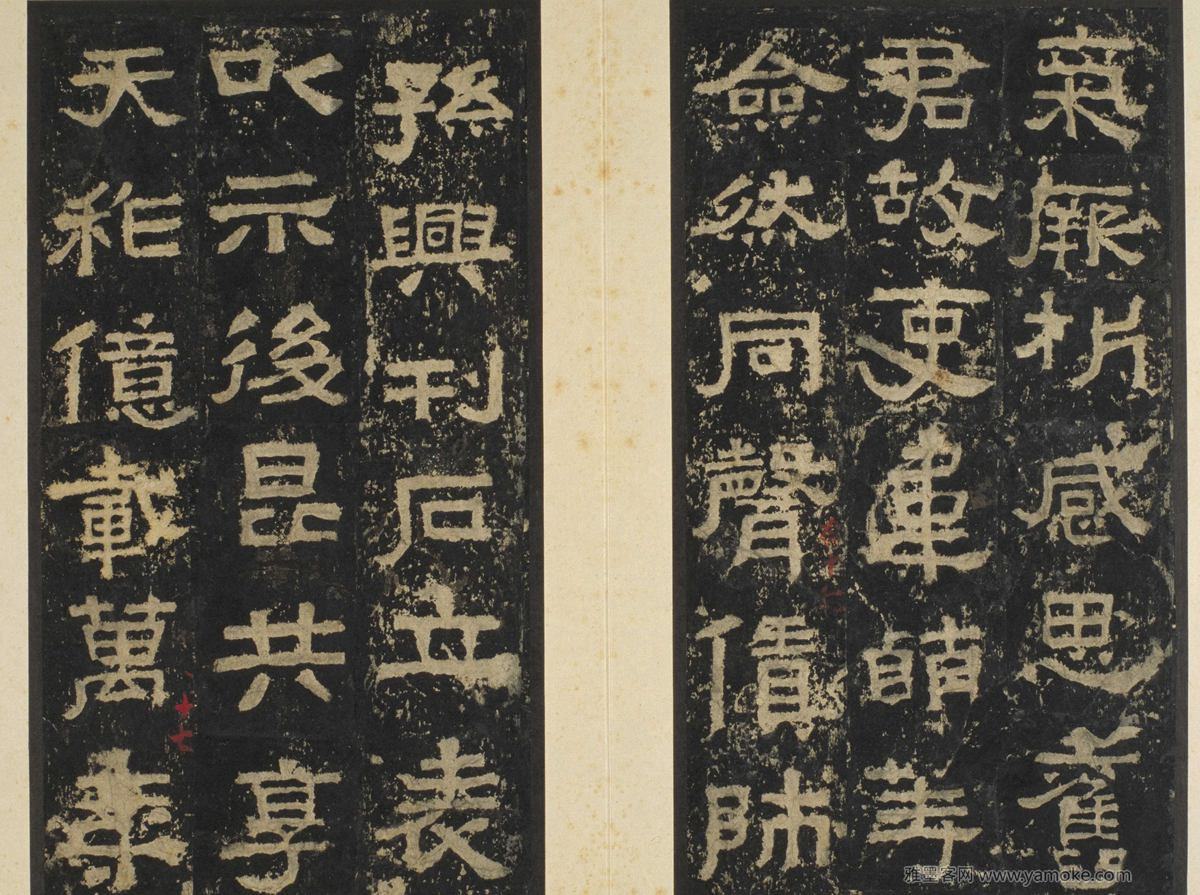 氣厥析感思舊
君故吏韋萌等
僉然同聲賃師
孫興刊石立表
以示後昆共享
天祚億載萬年
十七
雅墨客网 www.yamoke.com